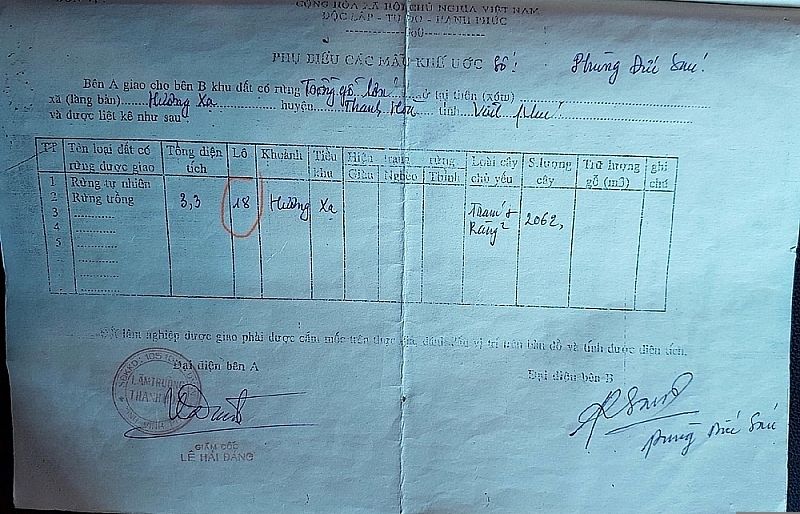 CỘNG HÒA XÃ HỘI CHỦ NGHĨA VIỆT NAM
ĐỘC LẬP - TỰ DO - HẠNH PHÚC
PHỤ BIỂU CÁC MẪU KHẾ ƯỚC Số: Phùng Đức Sáu
Bên A giao cho bên B khu đất có rừng Trồng gỗ lớn ở tại thôn (xóm)
xã (làng bản) Hương Xạ huyện Thanh Hòa tỉnh Vĩnh Phú
và được liệt kê như sau:
TT Tên loại đất có rừng được giao Tổng diện tích Lô Khoảnh Tiểu khu Hiện trạng rừng Giàu Nghèo T.bình Loài cây chủ yếu S.lượng cây Trữ lượng gỗ (m3) ghi chú
1 Rừng tự nhiên
2 Rừng trồng 3,3 18 Hương Xạ 2062,
3
4
5
Đất lâm nghiệp được giao phải được cắm mốc trên thực địa, đánh dấu vị trí trên bản đồ và tính được diện tích.
Đại diện bên A Đại diện bên B
LÂM TRƯỜNG
THANH
GIÁM ĐỐC
LÊ HẢI ĐĂNG
Phùng Đức Sáu